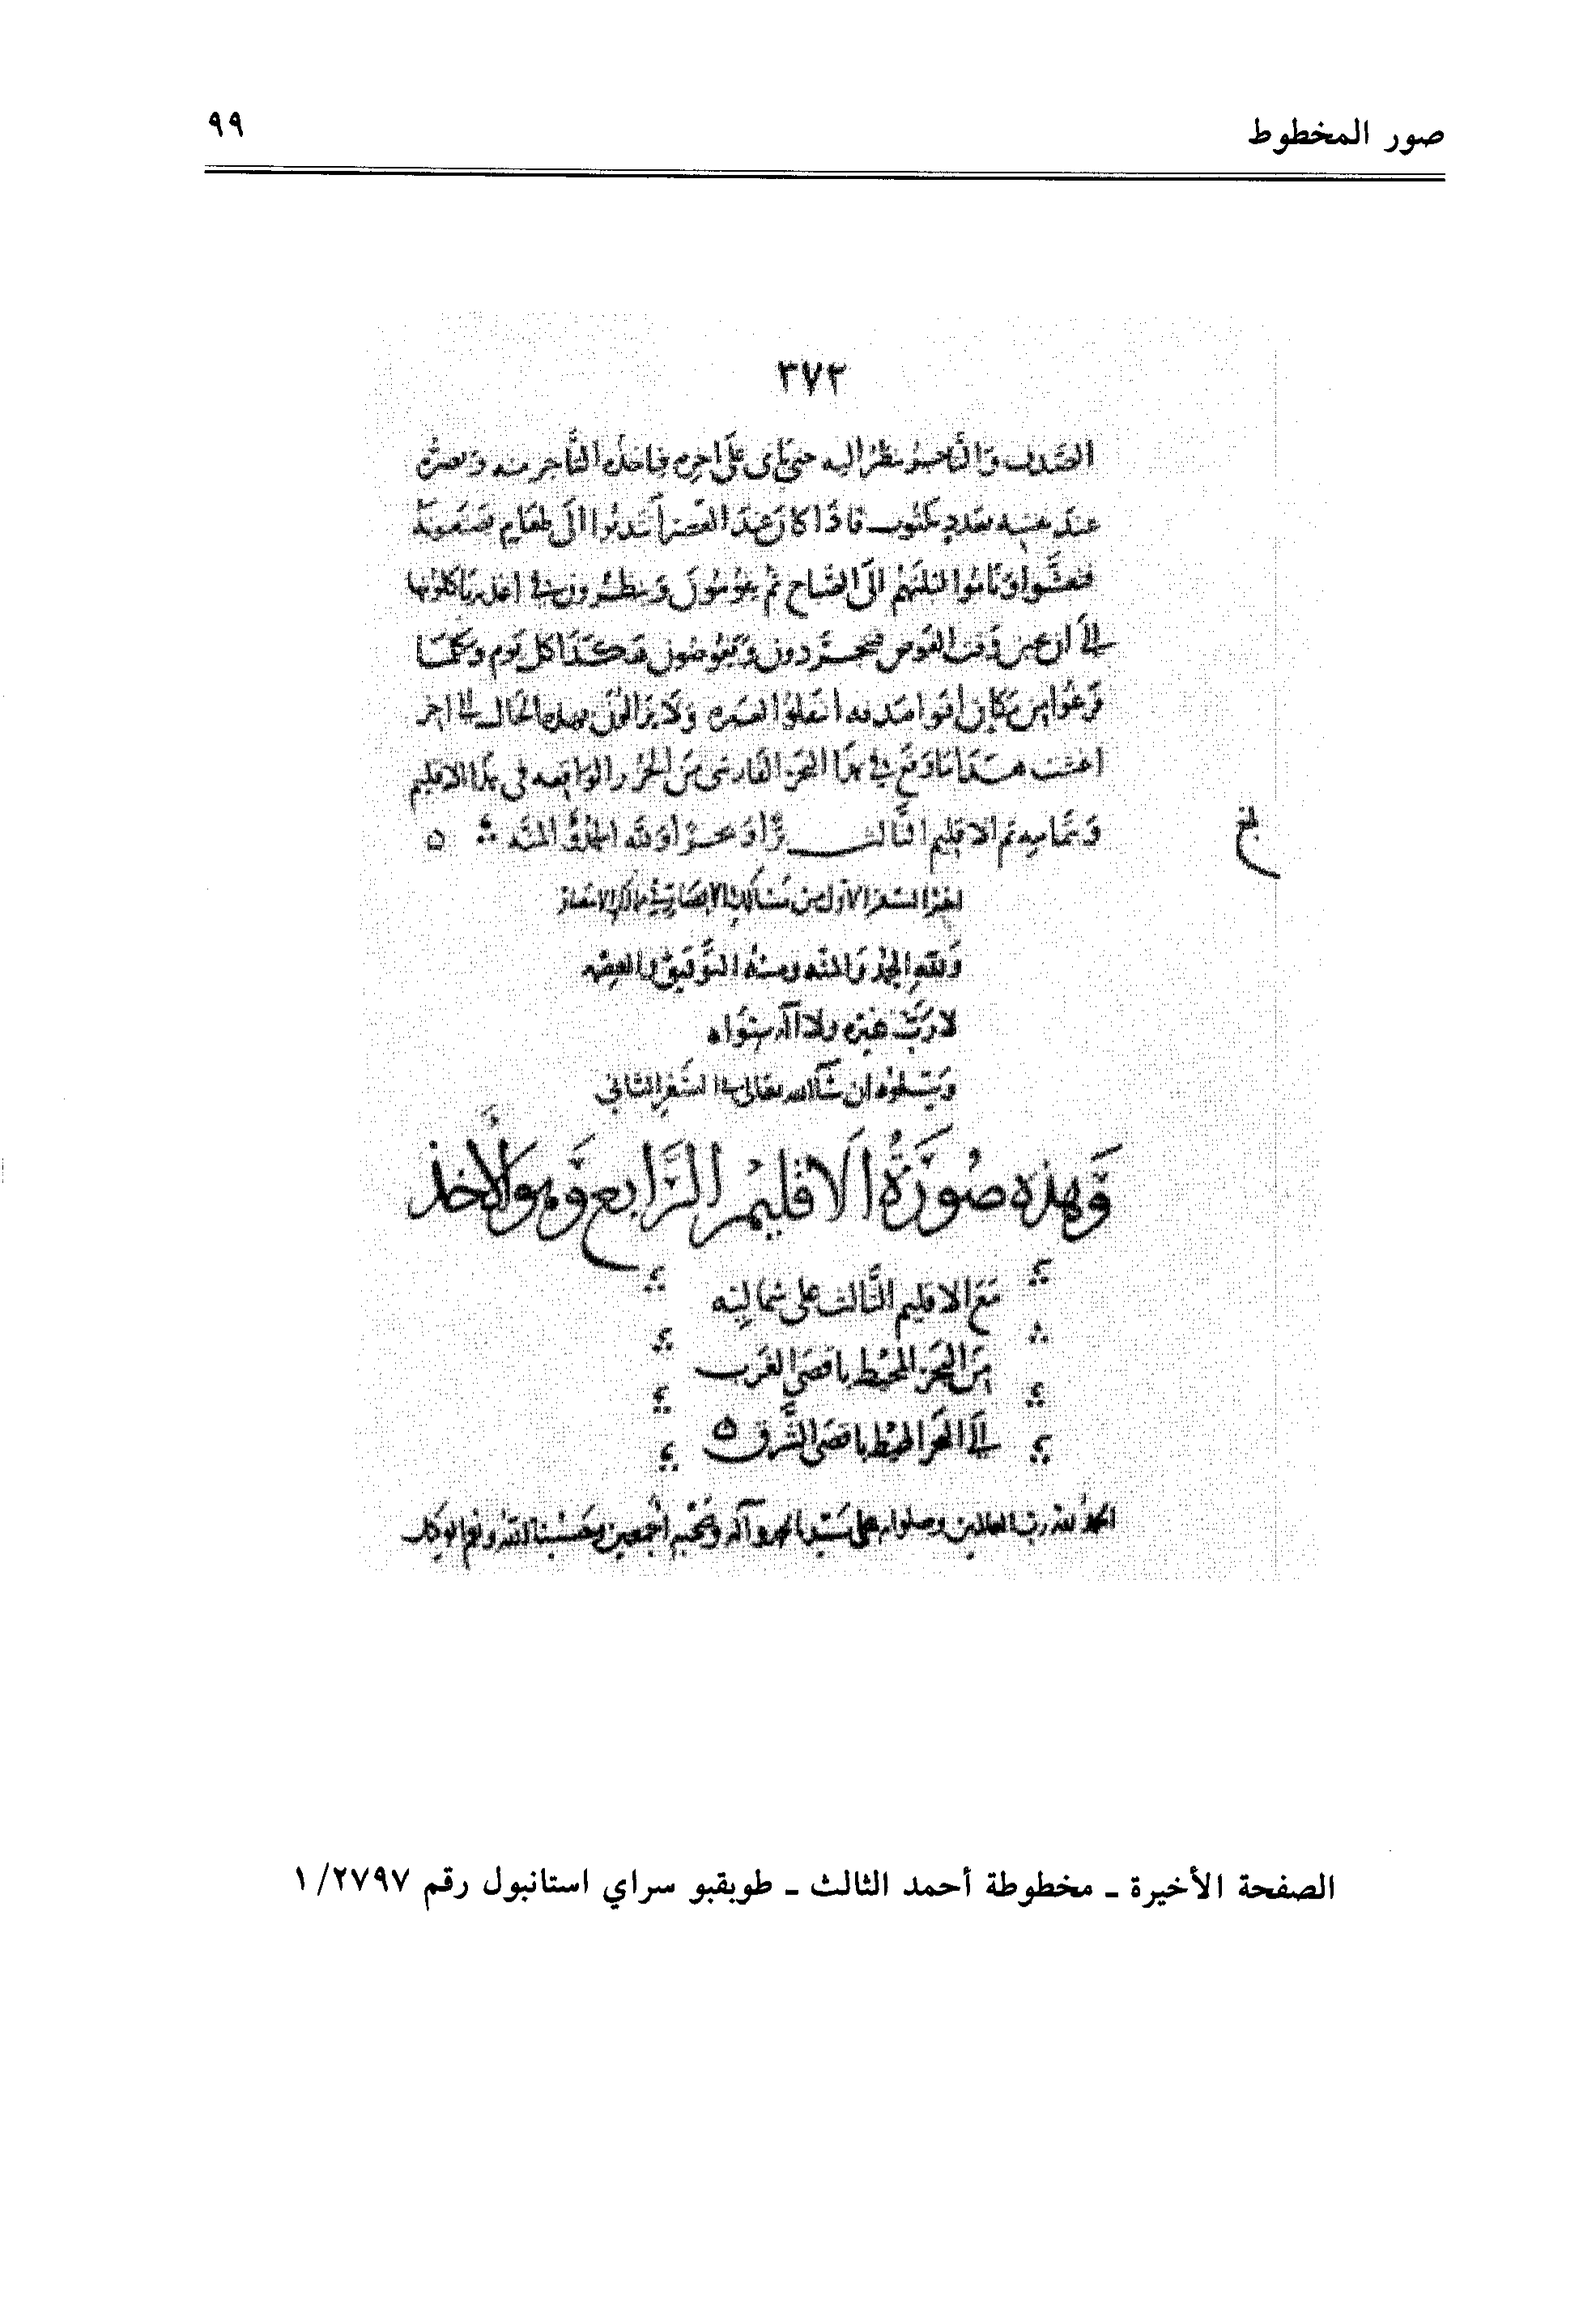 صور المخطوط
٩٩
٣٧٢
الصدف والتاجر ينظر اليه حتى ياتى على اخره فياخذه التاجر منه ويصره
عنده بعدد مكتوب فاذا كان عند العصر انتدبوا الى طعام يصنعونه
فتعشوا وناموا ليلتهم الى الصباح ثم يقومون وينظرون في اغذية ياكلونها
الى ان يحين وقت الغوص فيتجردون ويغوصون هكذا كل يوم وكلما
فرغوا من مكان انتقلوا الى غيره ولا يزالون بهذه الحال الى اخر
اغشت هذا ما وقع في هذا البحر الفارسى من الجزر الواقعه فى هذا الاقليم
وبتمامه تم الاقليم الثالث برا وبحرا ولله الحمد والمنه
اخر السفر الاول من مسالك الابصار في ممالك الامصار
ولله الحمد والمنه ومنه التوفيق والعصمه
لا رب غيره ولا اله سواه
ويتلوه ان شاء الله تعالى في السفر الثاني
وهذه صورة الاقليم الرابع وهو الآخذ
مع الاقليم الثالث على شماليه
من البحر المحيط باقصى الغرب
الى البحر المحيط باقصى الشرق
الحمد لله رب العالمين وصلواته على سيدنا محمد وآله وصحبه أجمعين وحسبنا الله ونعم الوكيل
الصفحة الأخيرة ـ مخطوطة أحمد الثالث ـ طوبقبو سراي استانبول رقم ٢٧٩٧/ ١